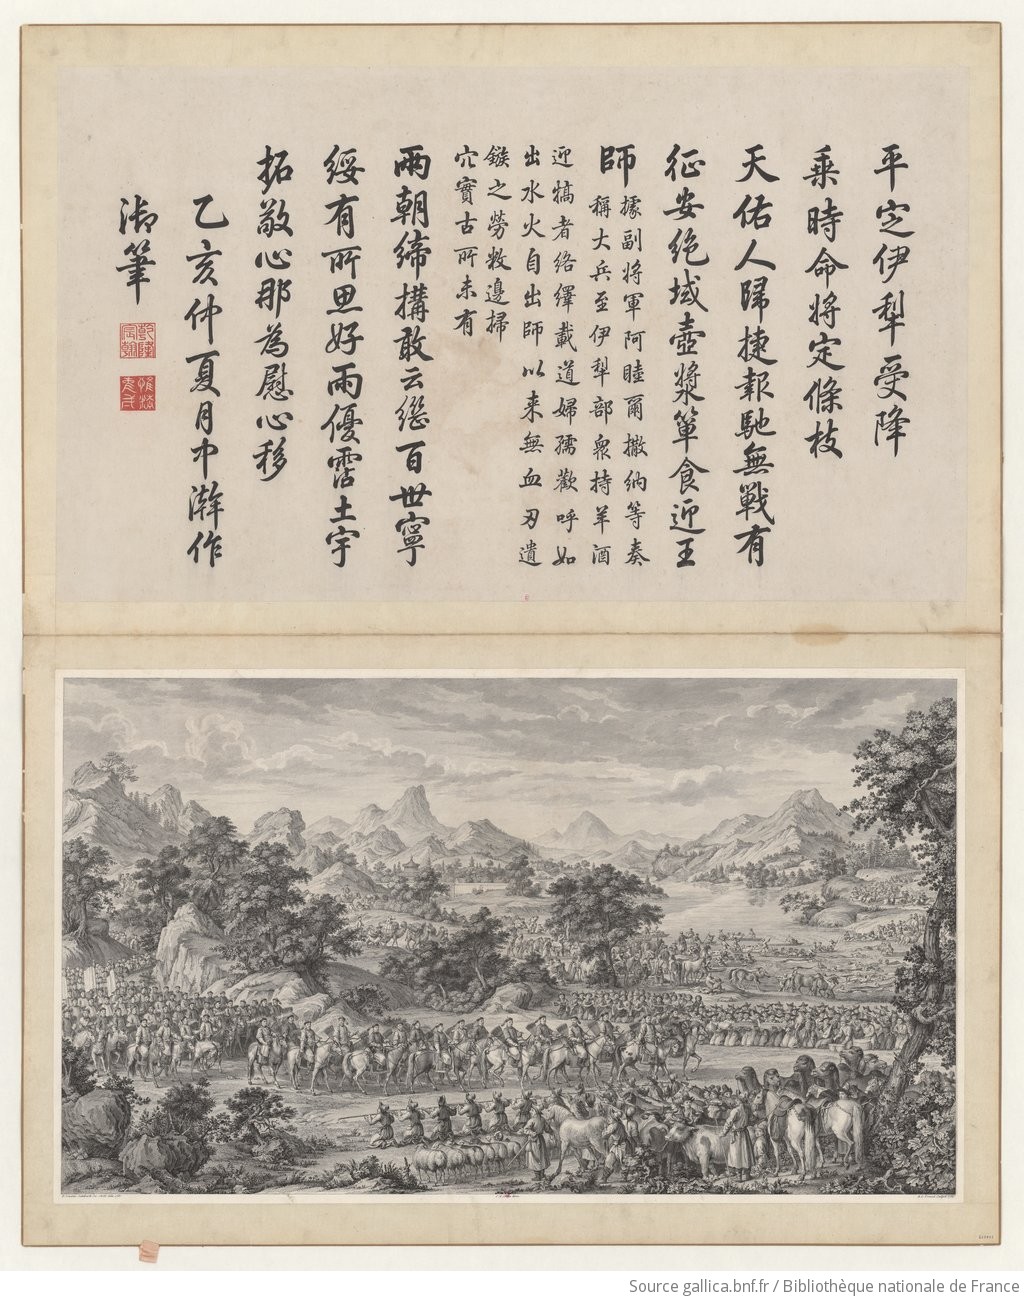 平定伊犁受降
乘時命將定條枝
天佑人歸捷報馳無戰有
征安絶域壺漿簞食迎王
師
據副將軍阿睦爾撒納等奏
稱大兵至伊犁部衆持羊酒
迎犒者絡繹載道婦孺歡呼如
出水火自出師以来無血刃遺
鏃之勞敉邊掃
穴實古所未有
兩朝締搆敢云繼百世寧
綏有所思好雨優霑土宇
拓敬心那為慰心移
乙亥仲夏月中澣作
御筆
乾隆宸翰
Source gallica.bnf.fr / Bibliothèque nationale de France